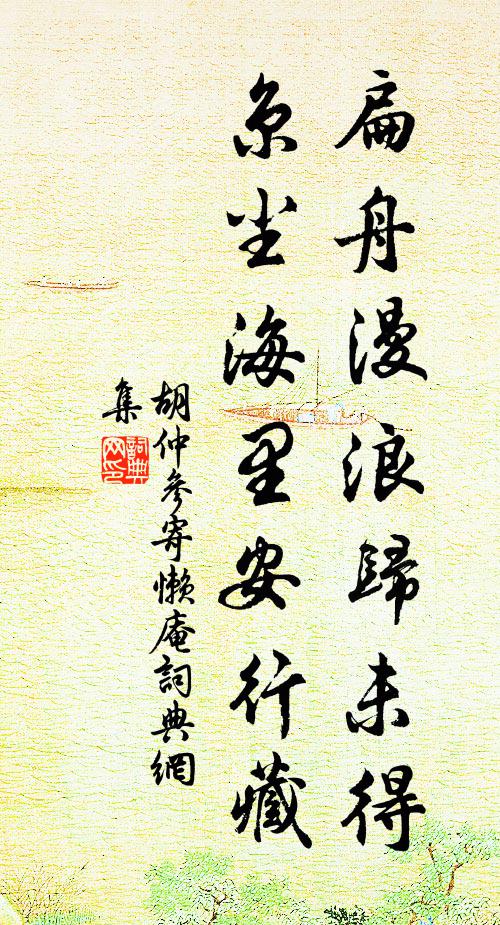 扁舟漫浪歸未得
京尘海里安行藏
胡仲參寄懶庵詞典網
集
詞典网印